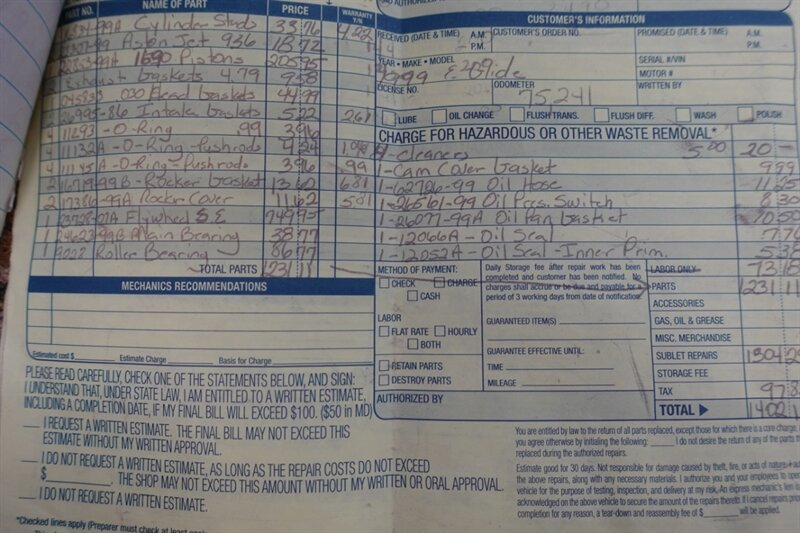 PART NO. NAME OF PART PRICE WARRANTY Y/N
16834-99A Cylinder Studs 33 76 4.22
Piston Jet 936 18 72
Pistons 205 95
Exhaust Gaskets 4.79 9 58
.030 Head Gaskets 44 99
26995-86 Intake Gaskets 5 22 2.61
4 11293 - O-Ring .99 3 96
4 11132A - O-Ring - Pushrods 4 24
4 11145A - O-Ring - Pushrods 3 96 .99
2 16719-99B - Rocker Gasket 13 62 6.81
2 17386-99A Rocker Cover 11 62 5.81
1 23728-07A Flywheel S.E 749 95
1 24623-99B Main Bearing 38 77
1 9028 Roller Bearing 86 77
TOTAL PARTS 1231 11
MECHANICS RECOMMENDATIONS
Estimated cost $ Estimate Charge Basis for Charge
PLEASE READ CAREFULLY, CHECK ONE OF THE STATEMENTS BELOW, AND SIGN:
I UNDERSTAND THAT, UNDER STATE LAW, I AM ENTITLED TO A WRITTEN ESTIMATE,
INCLUDING A COMPLETION DATE, IF MY FINAL BILL WILL EXCEED $100. ($50 in MD)
I REQUEST A WRITTEN ESTIMATE. THE FINAL BILL MAY NOT EXCEED THIS
ESTIMATE WITHOUT MY WRITTEN APPROVAL.
I DO NOT REQUEST A WRITTEN ESTIMATE, AS LONG AS THE REPAIR COSTS DO NOT EXCEED
$ THE SHOP MAY NOT EXCEED THIS AMOUNT WITHOUT MY WRITTEN OR ORAL APPROVAL.
I DO NOT REQUEST A WRITTEN ESTIMATE.
*Checked lines apply (Preparer must check at least
CUSTOMER'S INFORMATION
RECEIVED (DATE & TIME) A.M. P.M. CUSTOMER'S ORDER NO. PROMISED (DATE & TIME) A.M. P.M.
YEAR • MAKE • MODEL SERIAL #/VIN
1999 E Glide MOTOR #
LICENSE NO. ODOMETER WRITTEN BY
75,241
LUBE OIL CHANGE FLUSH TRANS. FLUSH DIFF. WASH POLISH
CHARGE FOR HAZARDOUS OR OTHER WASTE REMOVAL*
4 - cleaners 5.00 20 -
1 - Cam Cover Gasket 9 99
1 - 62726-99 Oil Hose 11 25
1 - 26561-99 Oil Pres. Switch 8 30
1 - 26077-99A Oil Pan Gasket 10 50
1 - 12066A - Oil Seal 7 76
1 - 12052A - Oil Seal - Inner Prim. 5 38
METHOD OF PAYMENT:
CHECK CHARGE
CASH
LABOR
FLAT RATE HOURLY
BOTH
RETAIN PARTS
DESTROY PARTS
AUTHORIZED BY
Daily Storage fee after repair work has been
completed and customer has been notified. No
charges shall accrue or be due and payable for a
period of 3 working days from date of notification.
GUARANTEED ITEM(S)
GUARANTEE EFFECTIVE UNTIL:
TIME
MILEAGE
LABOR ONLY 73 18
PARTS 1231 11
ACCESSORIES
GAS, OIL & GREASE
MISC. MERCHANDISE
SUBLET REPAIRS 1304 29
STORAGE FEE
TAX 97 8
TOTAL 1402 1
You are entitled by law to the return of all parts replaced, except those for which there is a core charge,
you agree otherwise by initialing the following: I do not desire the return of any of the parts
replaced during the authorized repairs.
Estimate good for 30 days. Not responsible for damage caused by theft, fire, or acts of nature.
the above repairs, along with any necessary materials. I authorize you and your employees to
vehicle for the purpose of testing, inspection, and delivery at my risk. An express mechanic's lien
acknowledged on the above vehicle to secure the amount of the repairs thereto. If I cancel repairs
completion for any reason, a tear-down and reassembly fee of $ will be applied.